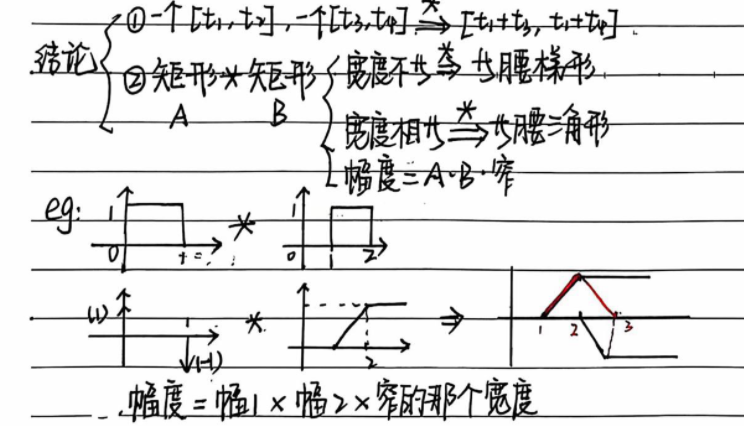 结论
① 一个[t₁, t₂], 一个[t₃, t₄] ⇒* [t₁+t₃, t₁+t₄].
② 矩形 * 矩形
A B
宽度不等 ⇒* 等腰梯形
宽度相等 ⇒* 等腰三角形
幅度 = A·B·窄
eg: 1 0 * 1 0 1 2
(1) (-1) * 2 ⇒ 1 2 3
幅度 = 幅1 × 幅2 × 窄的那个宽度